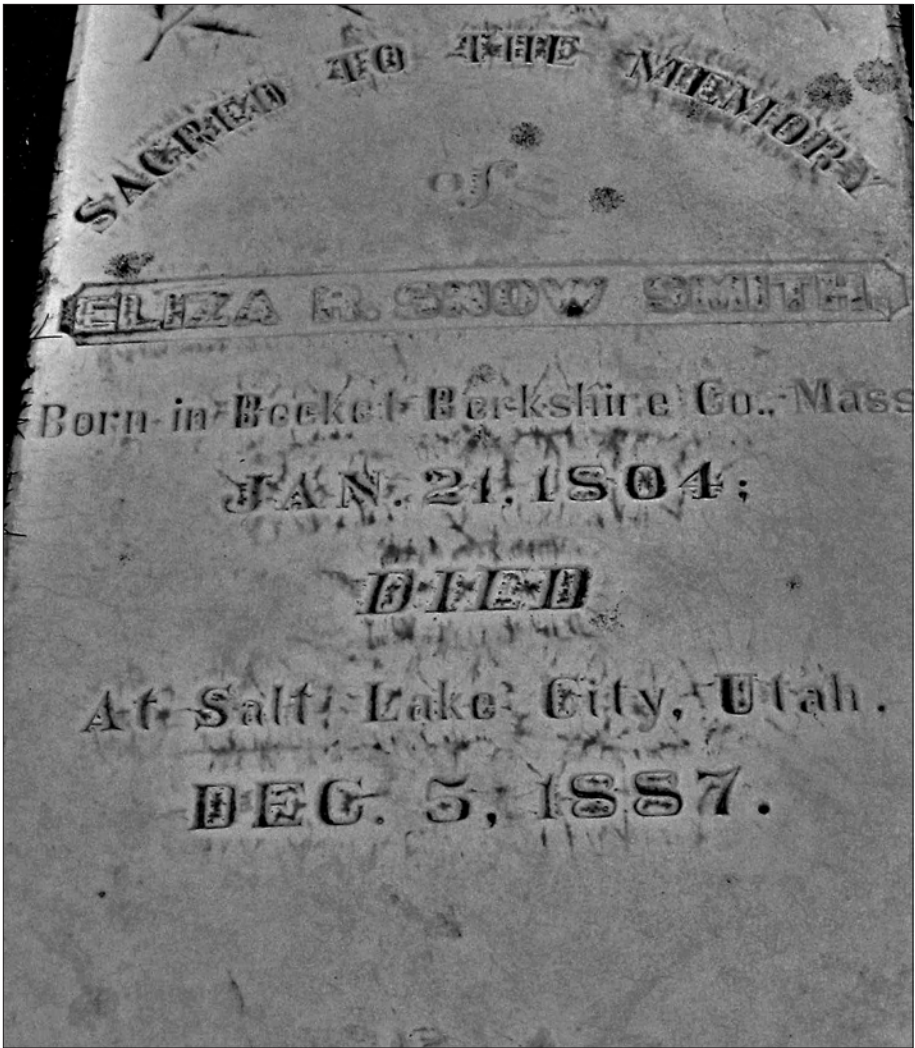 SACRED TO THE MEMORY
of
ELIZA R. SNOW SMITH.
Born in Becket Berkshire Co., Mass
JAN. 21, 1804;
DIED
At Salt Lake City, Utah.
DEC. 5, 1887.